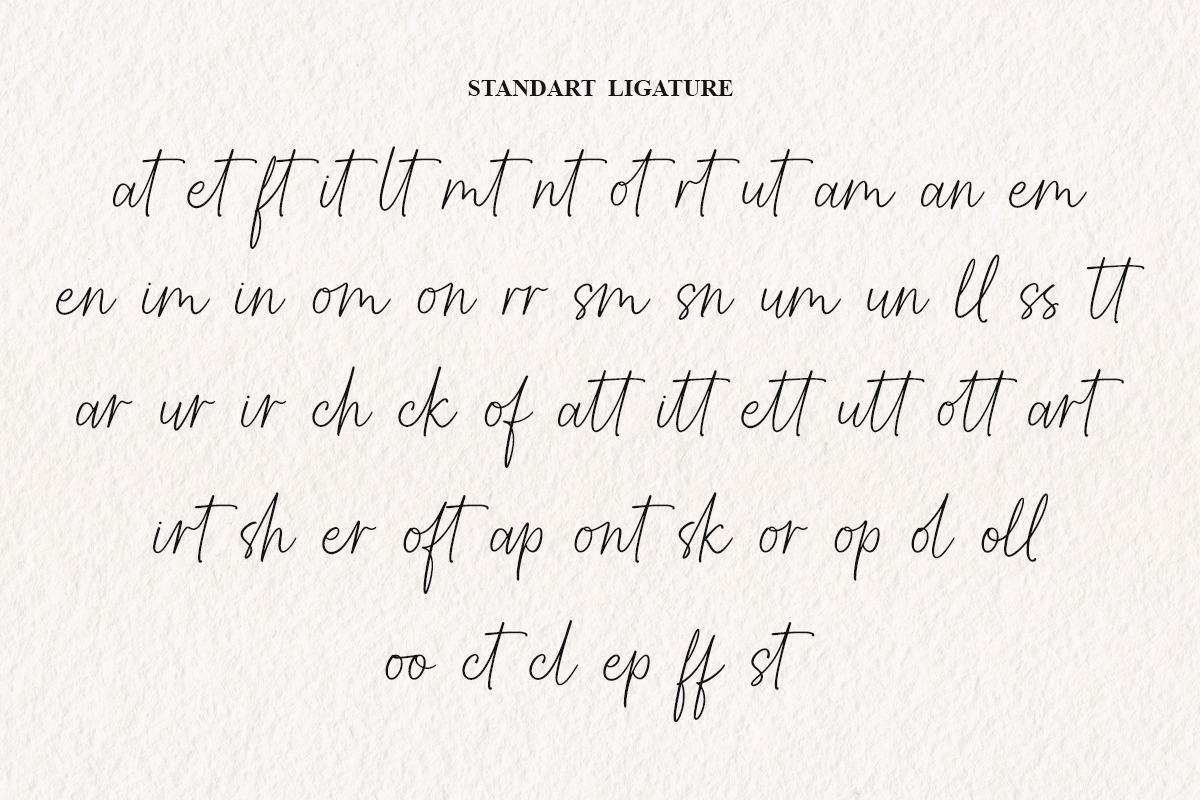 STANDART LIGATURE
at et ft it lt mt nt ot rt ut am an em
en im in om on rr sm sn um un ll ss tt
ar ur ir ch ck of att itt ett utt ott art
irt sh er oft ap ont sk or op ol oll
oo ct cl ep ff st